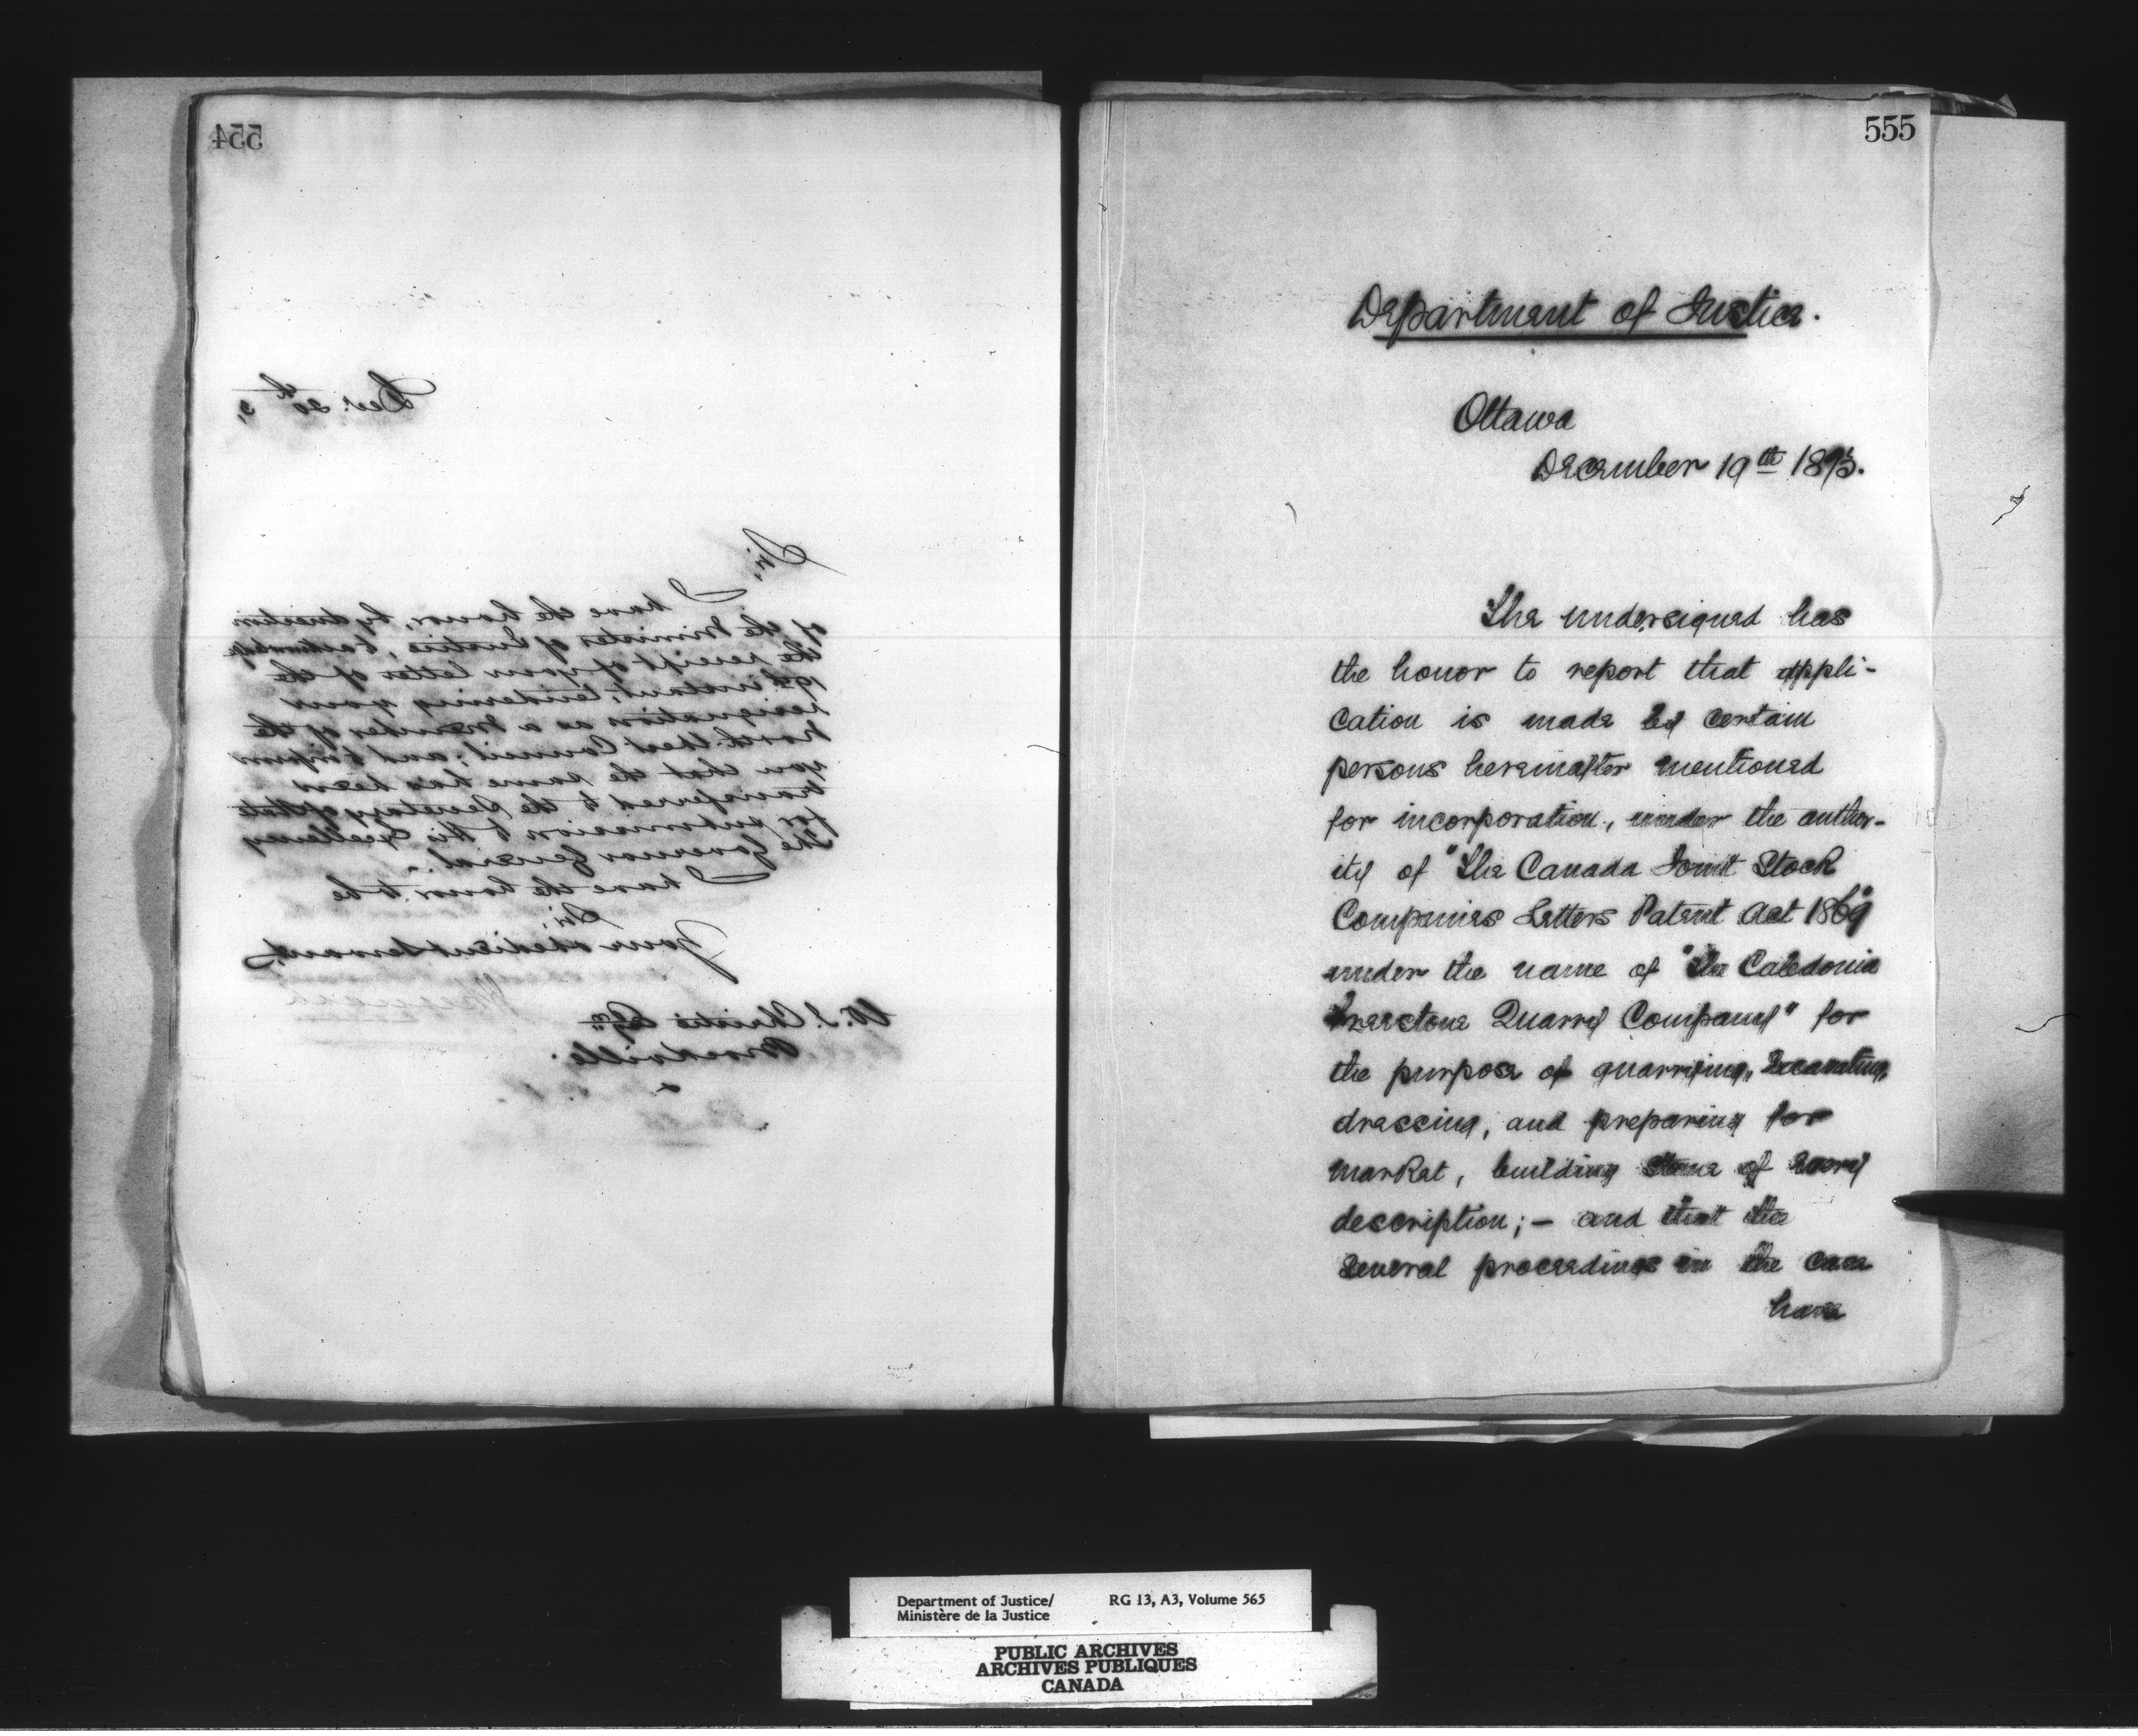 554
Dec. 20th 3,
Sir,
I have the honor, by direction
of the Minister of Justice, to acknowledge
the receipt of your letter of the
19th instant, tendering your
resignation as a Member of the
North-West Council; and to inform
you that the same has been
transferred to the Secretary of State
for submission to His Excellency
The Governor General.
I have the honor to be
Sir,
Your obedient servant,
W. J. Christie Esqre
Brockville.
555
Department of Justice.
Ottawa
December 19th 1873.
The undersigned has
the honor to report that appli-
cation is made by certain
persons hereinafter mentioned
for incorporation, under the author-
ity of "The Canada Joint Stock
Companies Letters Patent Act 1869"
under the name of "The Caledonia
Freestone Quarry Company" for
the purpose of quarrying, excavating,
dressing, and preparing for
market, building stone of every
description; – and that the
several proceedings in the case
have
Department of Justice/ RG 13, A3, Volume 565
Ministère de la Justice
PUBLIC ARCHIVES
ARCHIVES PUBLIQUES
CANADA